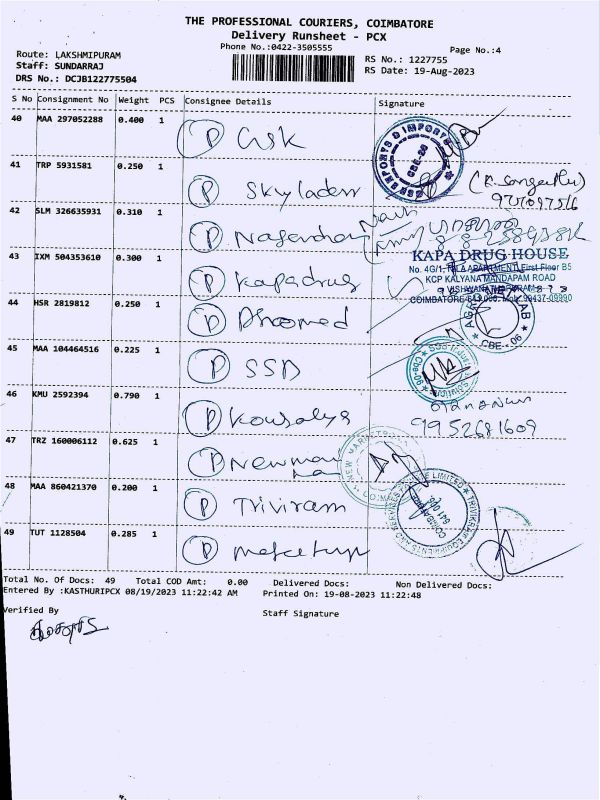 THE PROFESSIONAL COURIERS, COIMBATORE
Delivery Runsheet - PCX
Phone No.:0422-3505555
Page No.:4
Route: LAKSHMIPURAM
Staff: SUNDARRAJ
DRS No.: DCJB122775504
RS No.: 1227755
RS Date: 19-Aug-2023
S No Consignment No Weight PCS Consignee Details Signature
40 MAA 297052288 0.400 1 P GSK
41 TRP 5931581 0.250 1 P Skyladen
42 SLM 326635931 0.310 1 P
43 IXM 504353610 0.300 1 P Kapadrug
KAPA DRUG HOUSE
KCP KALYANA MANDAPAM ROAD
44 HSR 2819812 0.250 1 P Dhoomed
CBE - 06
45 MAA 104464516 0.225 1 P SSD
46 KMU 2592394 0.790 1 P Kousalya
9952681609
47 TRZ 160006112 0.625 1 P Newman
48 MAA 860421370 0.200 1 P Triviram
49 TUT 1128504 0.285 1 P
Total No. Of Docs: 49 Total COD Amt: 0.00 Delivered Docs: Non Delivered Docs:
Entered By :KASTHURIPCX 08/19/2023 11:22:42 AM Printed On: 19-08-2023 11:22:48
Verified By
Staff Signature